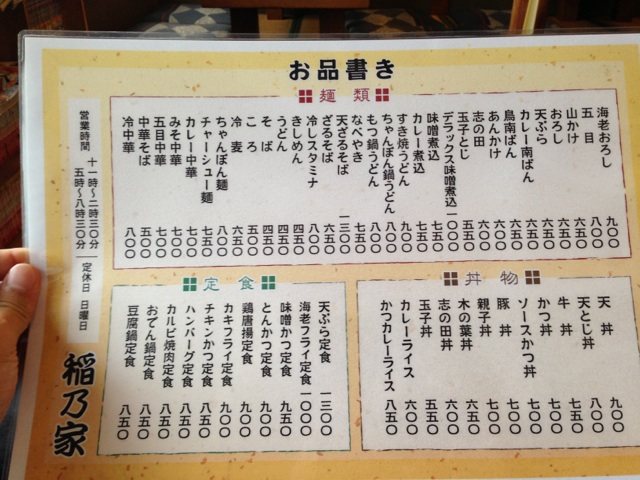 お品書き
麺類
海老おろし 九〇〇
五目 八〇〇
山かけ 六五〇
おろし 五五〇
天ぷら 六五〇
カレー南ばん 六五〇
鳥南ばん 五五〇
あんかけ 六〇〇
志の田 六〇〇
玉子とじ 五五〇
デラックス味噌煮込 一〇〇〇
味噌煮込 七五〇
カレー煮込 七五〇
すき焼うどん 九〇〇
ちゃんぽん鍋うどん 八〇〇
もつ鍋うどん 八〇〇
なべやき 七五〇
天ざるそば 一三〇〇
ざるそば 六五〇
冷しスタミナ 八〇〇
きしめん 四五〇
うどん 四五〇
そば 四五〇
ころ 五〇〇
冷麦 六五〇
ちゃんぽん麺 八〇〇
チャーシュー麺 七五〇
カレー中華 七〇〇
みそ中華 七〇〇
五目中華 七〇〇
中華そば 五〇〇
冷中華 八〇〇
丼物
天丼 九〇〇
天とじ丼
牛丼
かつ丼 七〇〇
ソースかつ丼 七〇〇
豚丼 七〇〇
親子丼 六〇〇
木の葉丼
志の田丼
玉子丼 五五〇
カレーライス 六〇〇
かつカレーライス 八五〇
定食
天ぷら定食 一三〇〇
海老フライ定食 一〇〇〇
味噌かつ定食 九五〇
とんかつ定食 九〇〇
鶏唐揚定食 九〇〇
カキフライ定食 九〇〇
チキンかつ定食 八五〇
ハンバーグ定食 八五〇
カルビ焼肉定食 八五〇
おでん鍋定食 八五〇
豆腐鍋定食 八五〇
営業時間 十一時〜二時三〇分
五時〜八時三〇分
定休日 日曜日
稲乃家